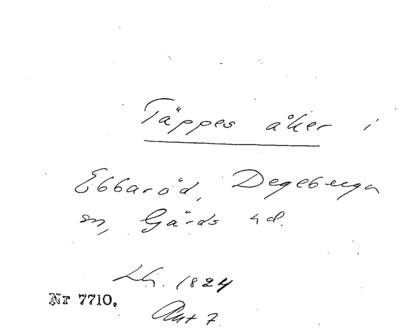 Täppes åker i
Ebbaröd, Degeberga
sn, Gärds hd.
Lh. 1824
Nr 7710.
Akt 7